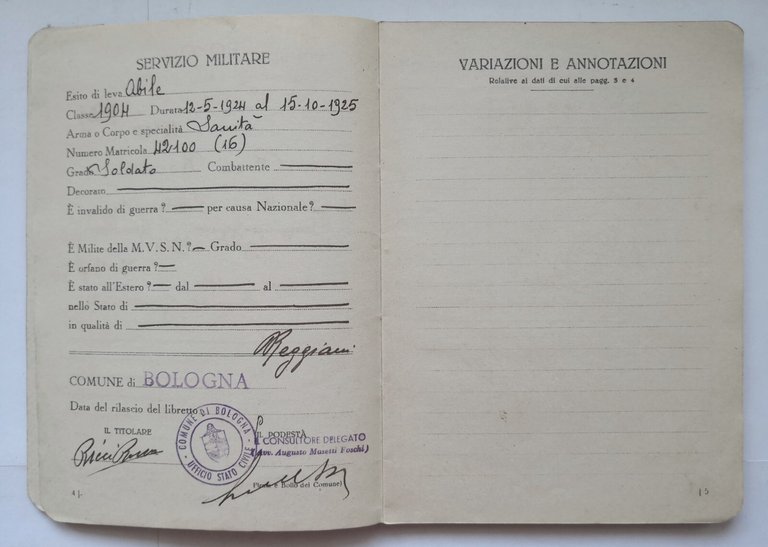 SERVIZIO MILITARE
Esito di leva Abile
Classe 1904 Durata 12-5-1924 al 15-10-1925
Arma o Corpo e specialità Sanità
Numero Matricola 42100 (16)
Grado Soldato Combattente
Decorato
È invalido di guerra? per causa Nazionale?
È Milite della M.V.S.N.? Grado
È orfano di guerra?
È stato all'Estero? dal al
nello Stato di
in qualità di
Reggiani
COMUNE di BOLOGNA
Data del rilascio del libretto
IL TITOLARE IL PODESTÀ
IL CONSULTORE DELEGATO
(Avv. Augusto Musetti Foschi)
COMUNE DI BOLOGNA
UFFICIO STATO CIVILE
(Firma e Bollo del Comune)
4
VARIAZIONI E ANNOTAZIONI
Relative ai dati di cui alle pagg. 3 e 4
5